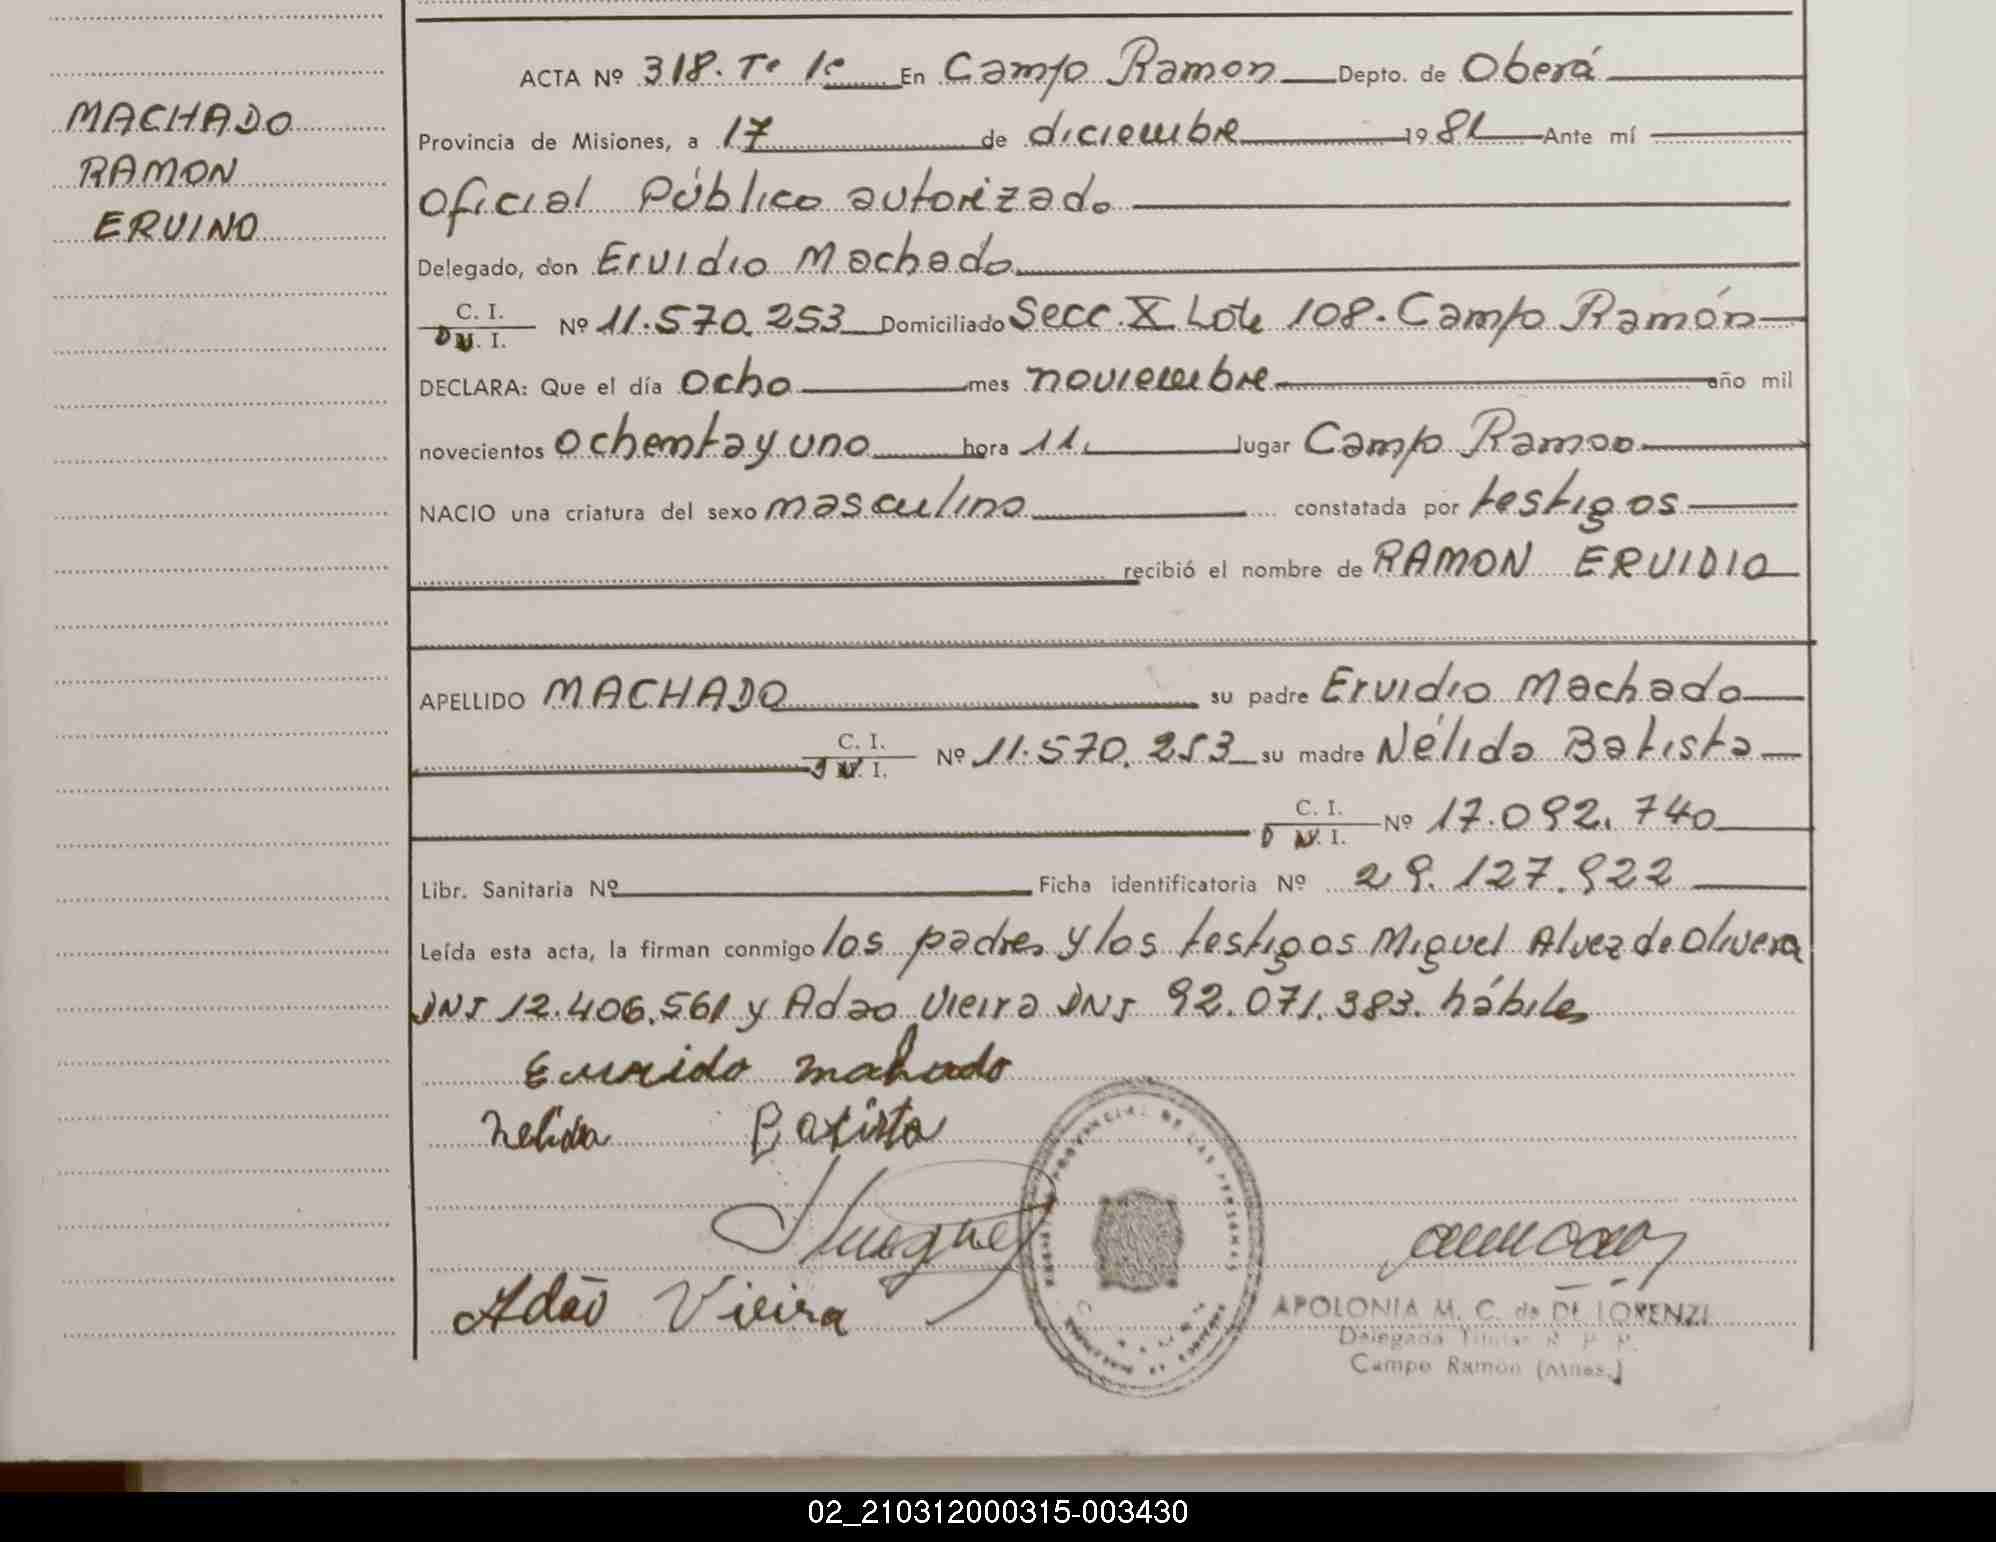 MACHADO
RAMON
ERVINO
ACTA Nº 318. Tº 1º En Campo Ramon Depto. de Oberá
Provincia de Misiones, a 17 de diciembre 1981 Ante mí
Oficial Público autorizado
Delegado, don Ervidio Machado
C. I.
D N. I. Nº 11.570.253 Domiciliado Secc. X Lote 108. Campo Ramón
DECLARA: Que el día ocho mes noviembre año mil
novecientos ochenta y uno hora 11. lugar Campo Ramon
NACIO una criatura del sexo masculino constatada por testigos
recibió el nombre de RAMON ERVIDIO
APELLIDO MACHADO su padre Ervidio Machado
C. I.
D N. I. Nº 11.570.253 su madre Nélida Batista
C. I.
D N. I. Nº 17.092.740
Libr. Sanitaria Nº Ficha identificatoria Nº 29.127.922
Leída esta acta, la firman conmigo los padres y los testigos Miguel Alvez de Olivera
DNI 12.406.561 y Adao Vieira DNI 92.071.383. hábiles
machado
Nelida Batista
Adão Vieira
PROVINCIAL DE LAS PERSONAS
APOLONIA M. C. de DE LORENZI
Delegada Titular R. P. P.
Campo Ramon (Mnes.)
02_210312000315-003430